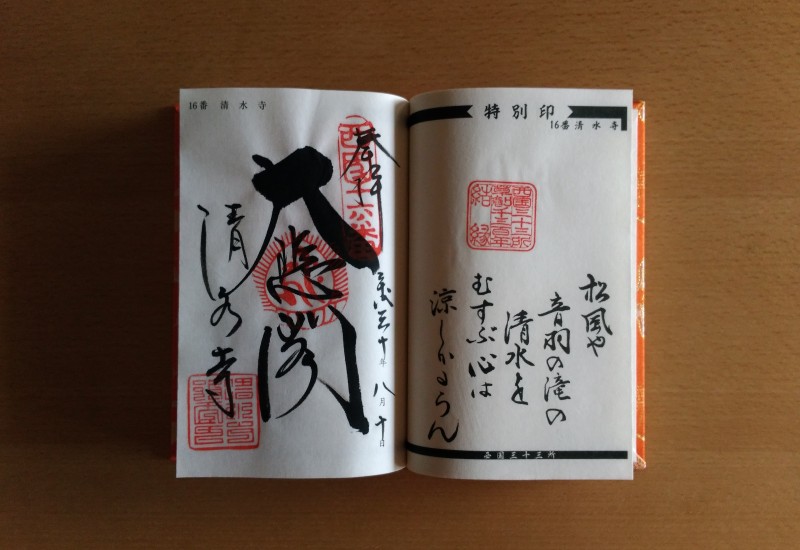 特別印
16番 清水寺
西国三十三所
草創千三百年
結縁
松風や
音羽の滝の
清水を
むすぶ心は
涼しかるらん
西国三十三所
16番 清水寺
奉拝
西国十六番
平成三十年八月十日
大悲閣
清水寺